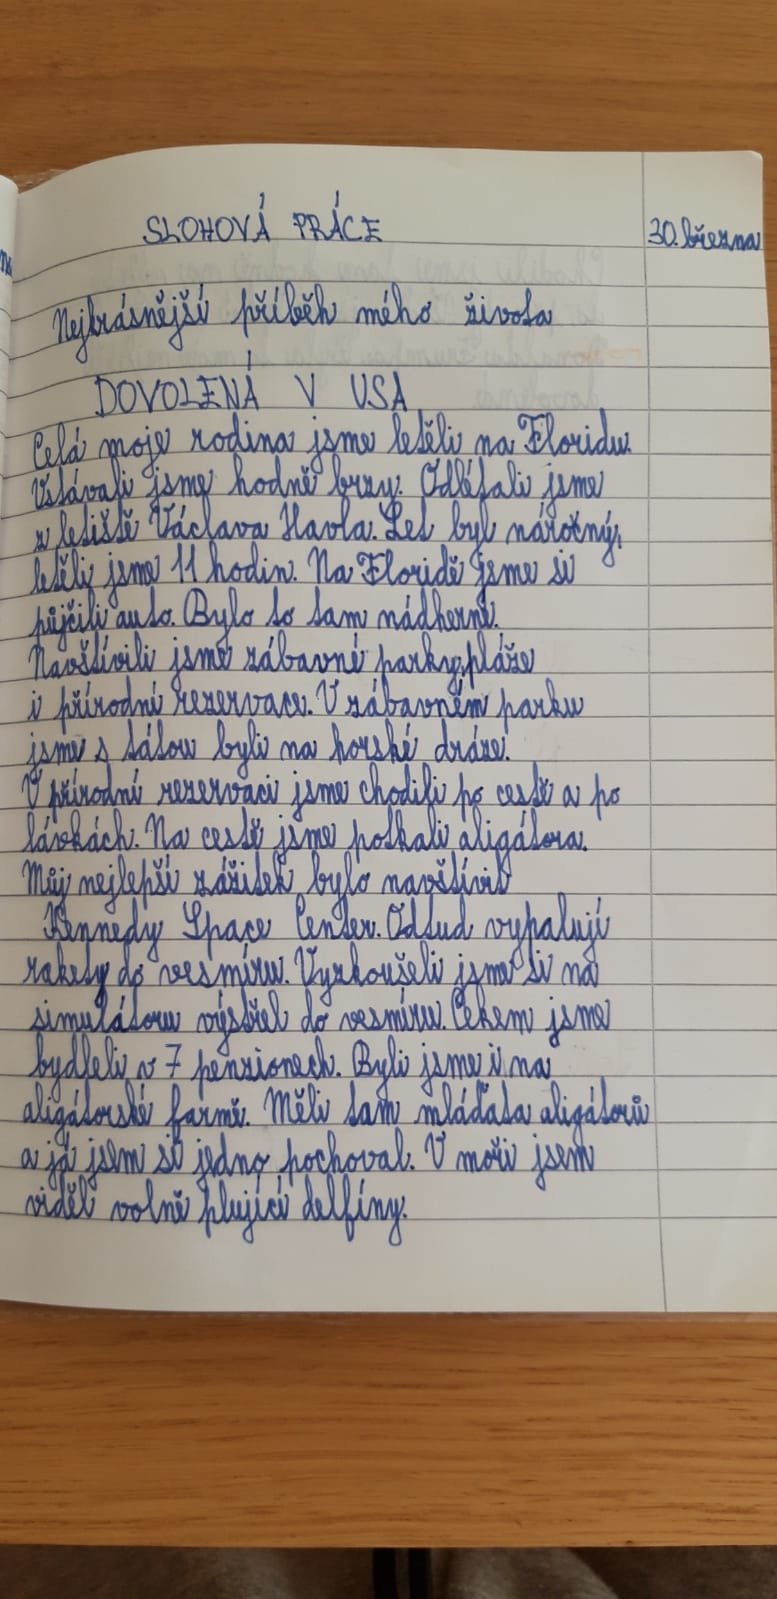 SLOHOVÁ PRÁCE
30. března
Nejkrásnější příběh mého života
DOVOLENÁ V USA
Celá moje rodina jsme letěli na Floridu.
Vstávali jsme hodně brzy. Odlétali jsme
z letiště Václava Havla. Let byl náročný,
letěli jsme 11 hodin. Na Floridě jsme si
půjčili auto. Bylo to tam nádherné.
Navštívili jsme zábavné parky, pláže
i přírodní rezervace. V zábavném parku
jsme s tátou byli na horské dráze.
V přírodní rezervaci jsme chodili po cestě a po
lávkách. Na cestě jsme potkali aligátora.
Můj nejlepší zážitek bylo navštívit
Kennedy Space Center. Odtud vypalují
rakety do vesmíru. Vyzkoušeli jsme si na
simulátoru výstřel do vesmíru. Cekem jsme
bydleli v 7 penzionech. Byli jsme i na
aligátorské farmě. Měli tam mláďata aligátorů
a já jsem si jedno pochoval. V moři jsem
viděli volně plující delfíny.